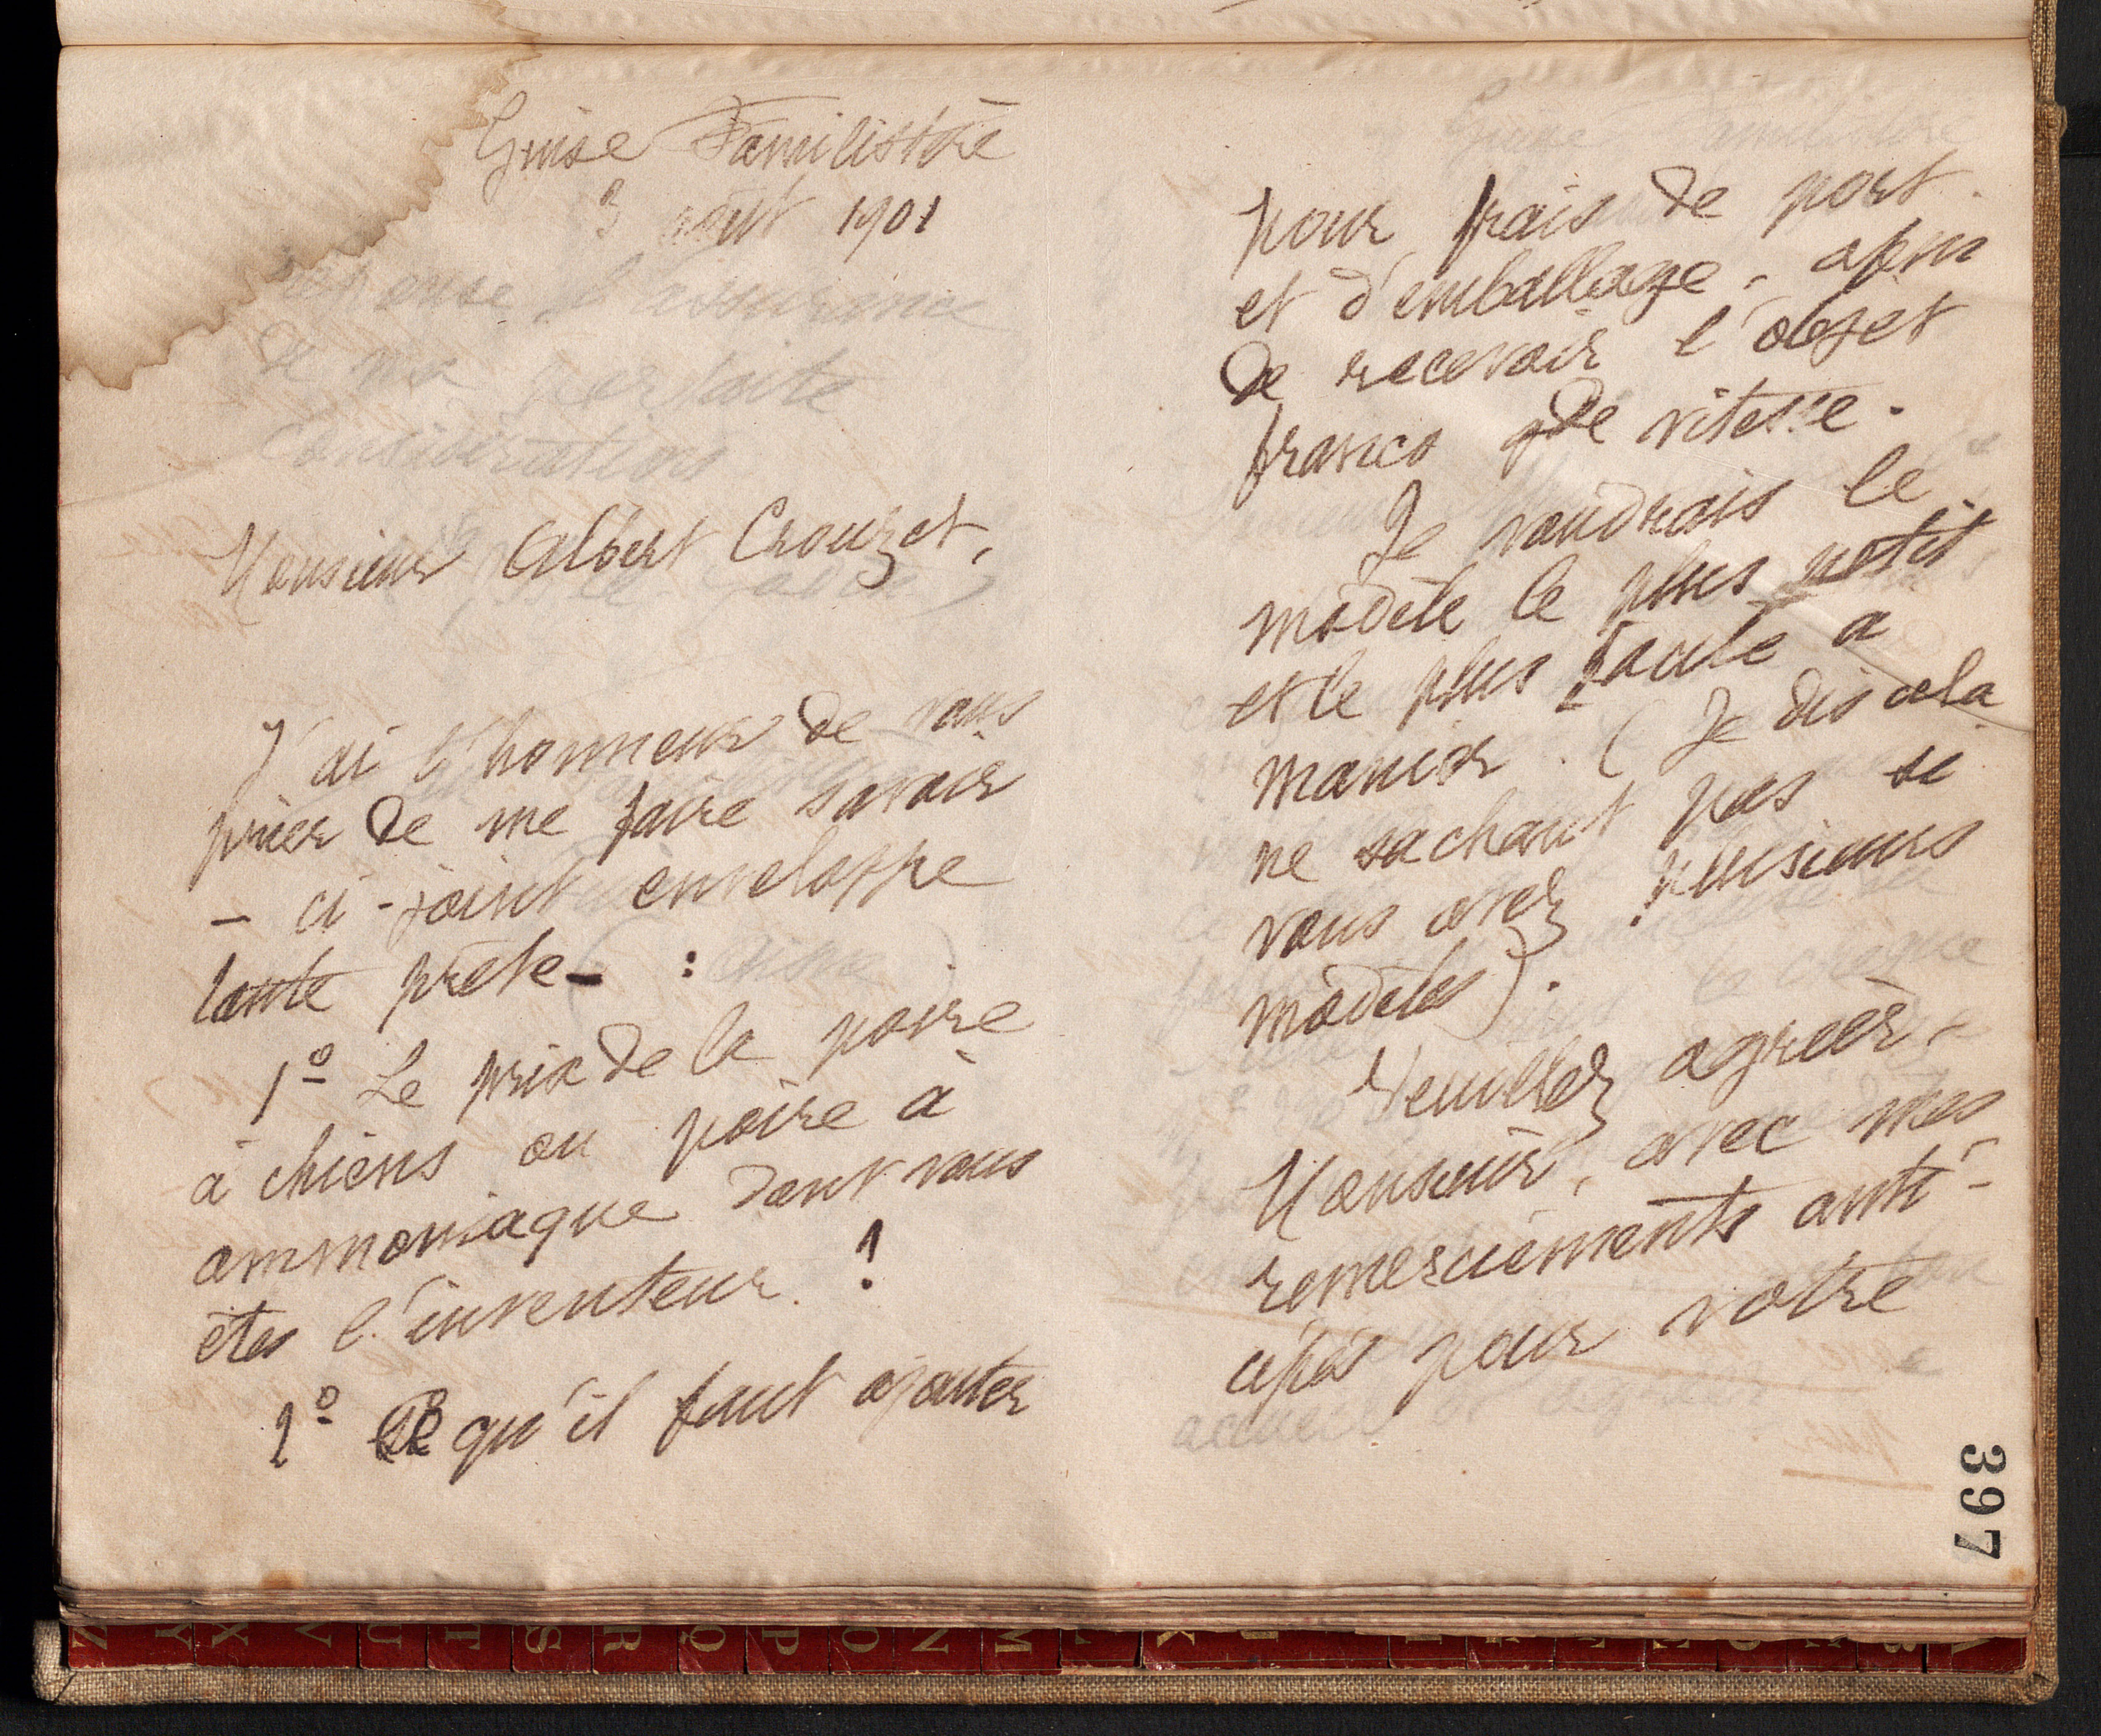 Guise Familistère
3 août 1901
Monsieur Albert Crouzet,
J'ai l'honneur de vous
prier de me faire savoir
– ci-joint enveloppe
toute prête – :
1º Le prix de la poire
à chiens ou poire à
ammoniaque dont vous
êtes l'inventeur ?
2º Ce qu'il faut ajouter
pour frais de port
et d'emballage, afin
de recevoir l'objet
franco gde vitesse.
Je voudrais le
modèle le plus petit
et le plus facile à
manier. (Je dis cela
ne sachant pas si
vous avez plusieurs
modèles).
Veuillez agréer,
Monsieur, avec mes
remerciements anti-
cipés pour votre
réponse l'assurance
de ma parfaite
considération
397
Z Y X V U T S R Q P O N M